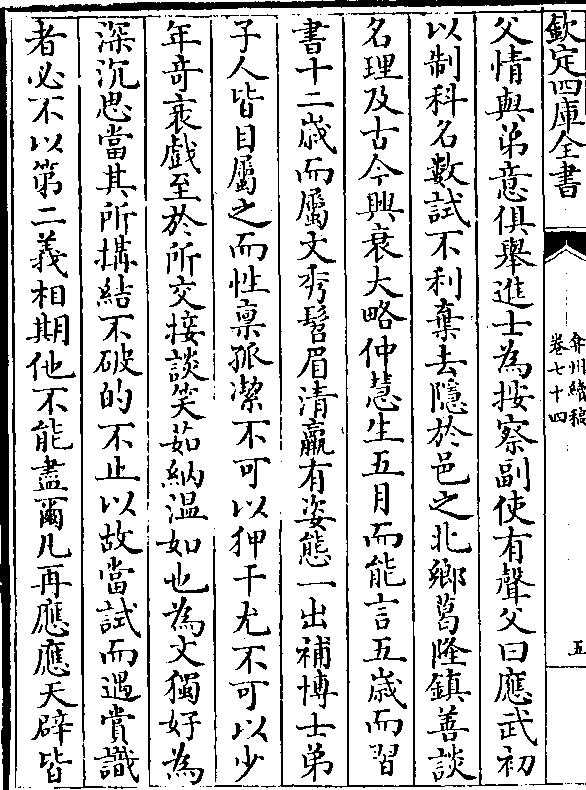 欽定四庫全書
弇州續稿
卷七十四
五
父情與弟意俱舉進士為按察副使有聲父曰應武初
以制科名數試不利棄去隱於邑之北鄉葛隆鎮善談
名理及古今興衰大略仲慧生五月而能言五歲而習
書十二歲而屬文秀髫眉清羸有姿態一出補博士弟
子人皆目屬之而性稟孤潔不可以狎干尤不可以少
年奇衺戲至於所交接談笑茹納温如也為文獨好為
深沉思當其所搆結不破的不止以故當試而遇賞識
者必不以第二義相期他不能盡爾凡再應應天辟皆